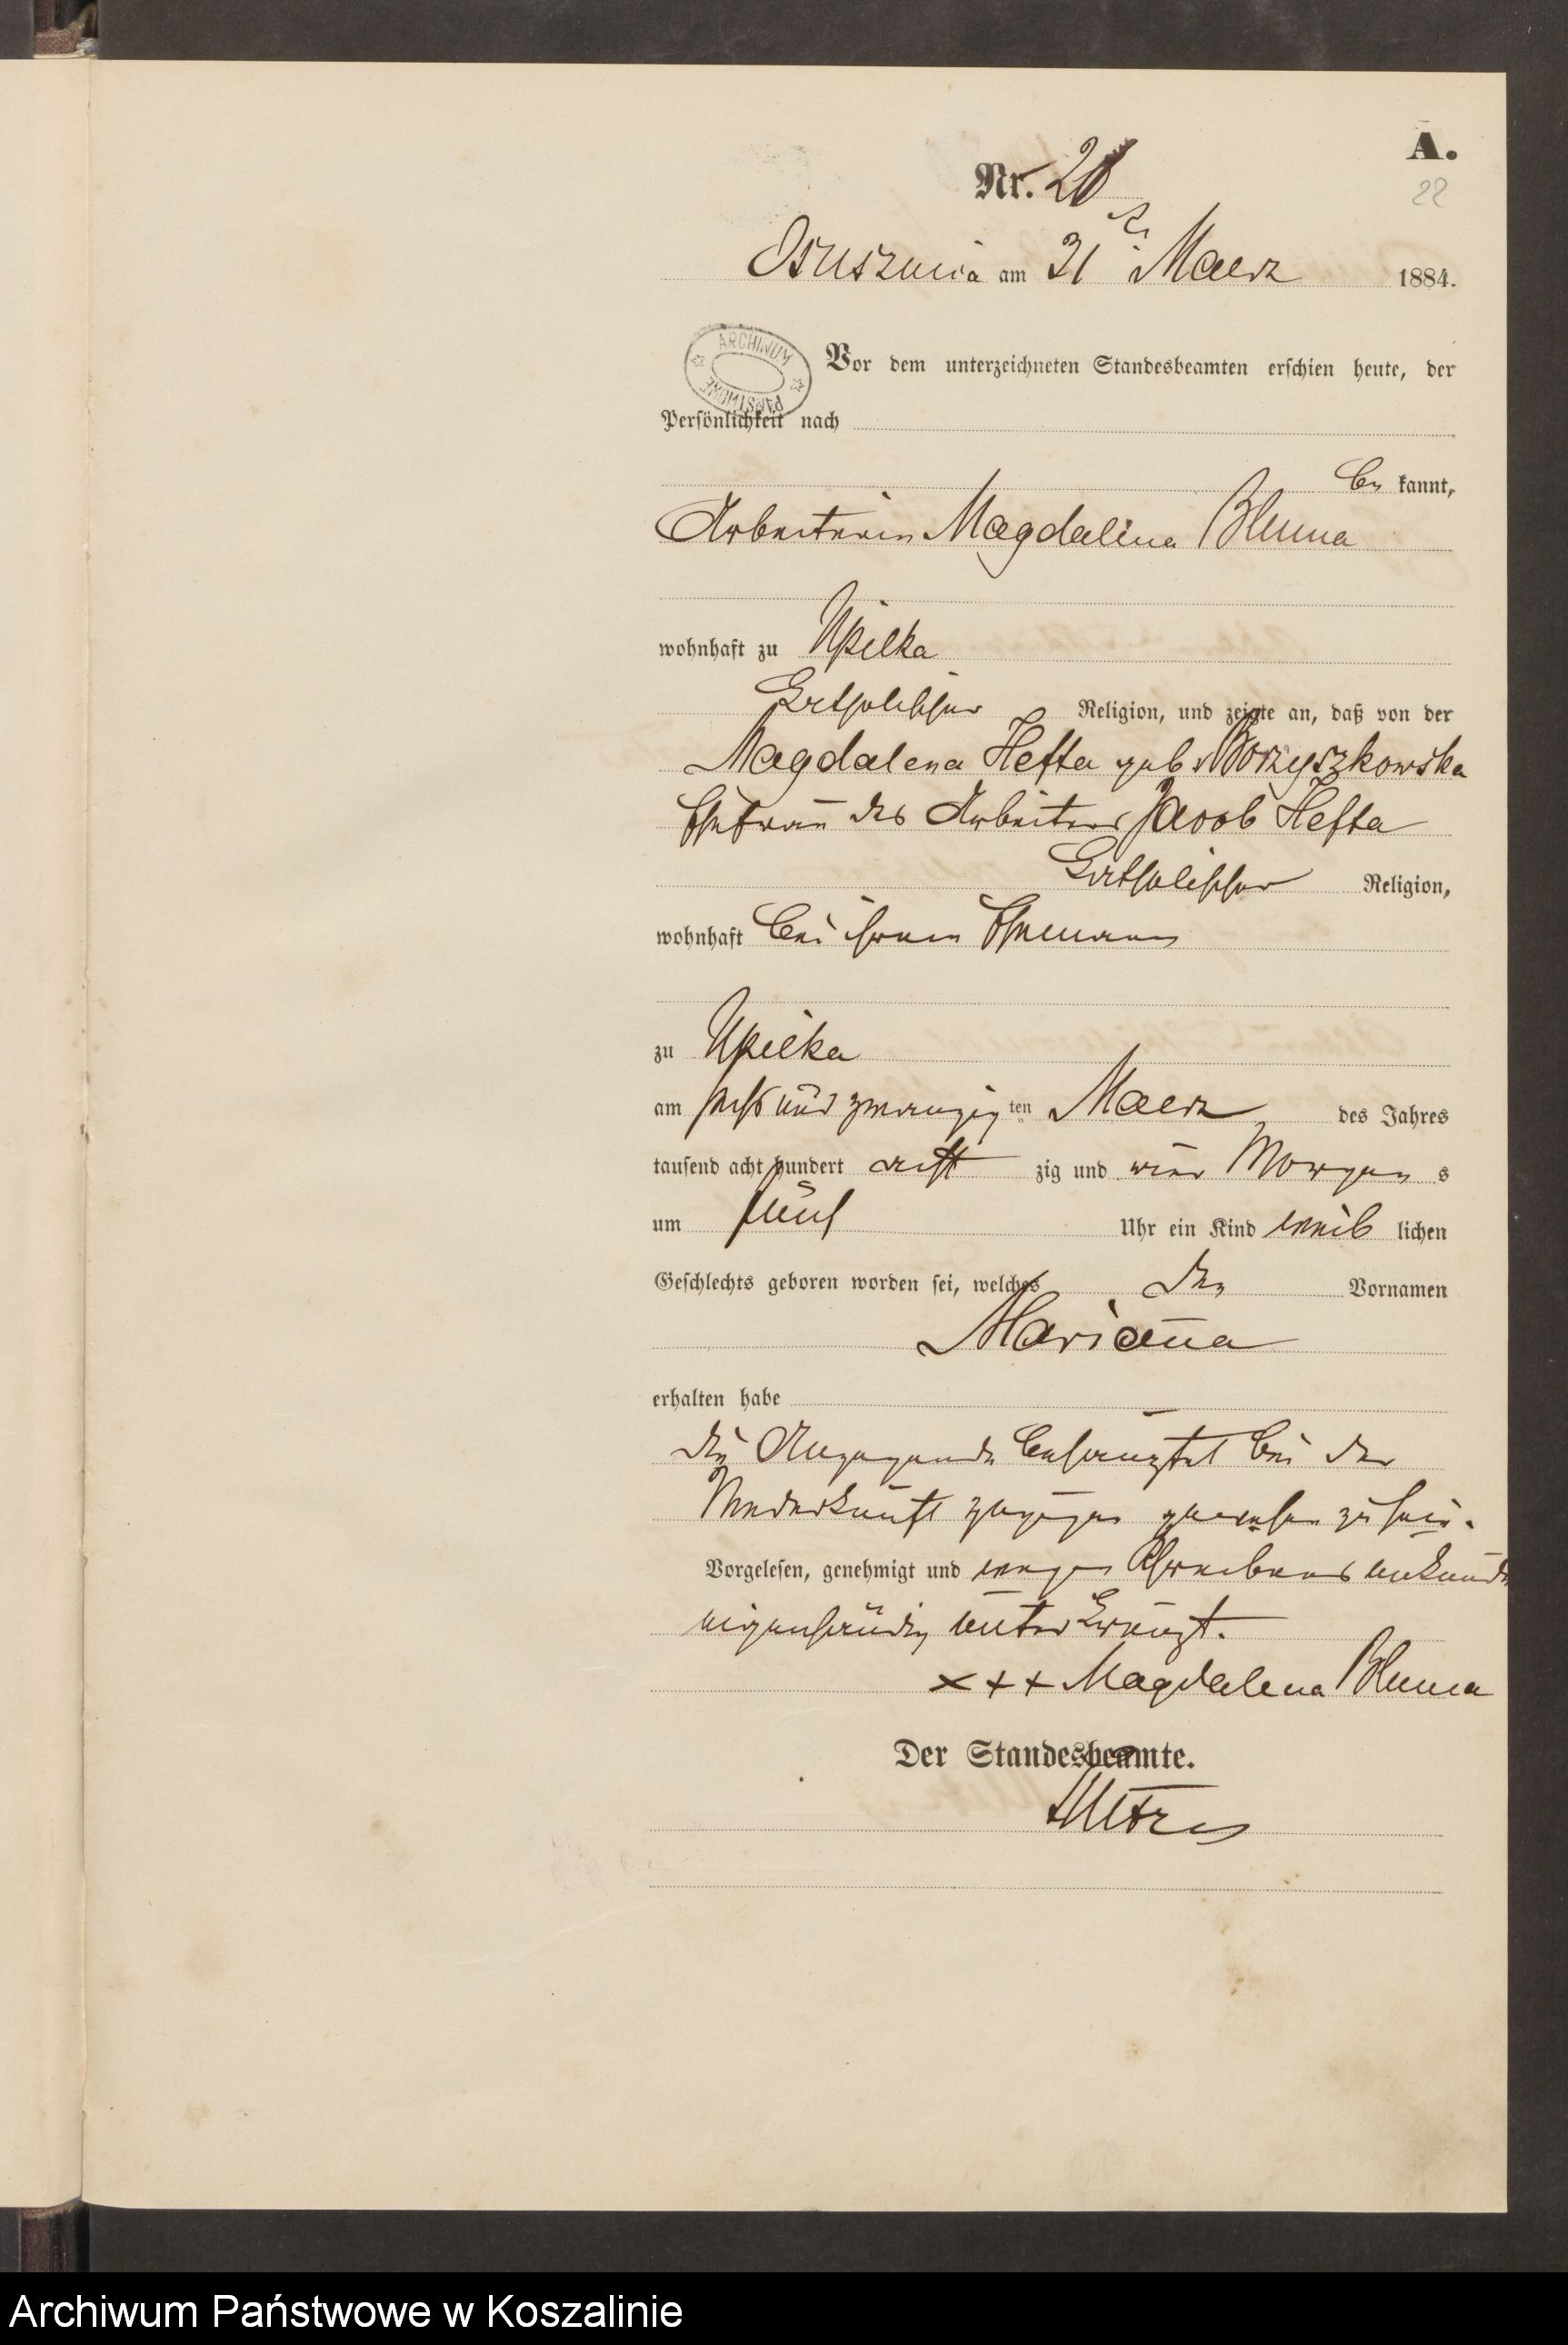 A.
22
Nr. 21
Osusznica am 31 ten Maerz 1884.
ARCHIWUM PAŃSTWOWE
Vor dem unterzeichneten Standesbeamten erschien heute, der
Persönlichkeit nach
be kannt,
Arbeiterin Magdalena Bluma
wohnhaft zu Upilka
katholischer Religion, und zeigte an, daß von der
Magdalena Hefta geb v Borzyszkowska
Ehefrau des Arbeiters Jacob Hefta
katholischer Religion,
wohnhaft bei ihrem Ehemann
zu Upilka
am sechs und zwanzig ten Maerz des Jahres
tausend acht hundert acht zig und vier Morgen s
um fünf Uhr ein Kind weib lichen
Geschlechts geboren worden sei, welches den Vornamen
Marianna
erhalten habe
die Anzeigende behauptet bei der
Niederkunft zugegen gewesen zu sein.
Vorgelesen, genehmigt und wegen Schreibens unkunde
eigenhändig unterkreuzt.
+++ Magdalena Bluma
Der Standesbeamte.
Archiwum Państwowe w Koszalinie